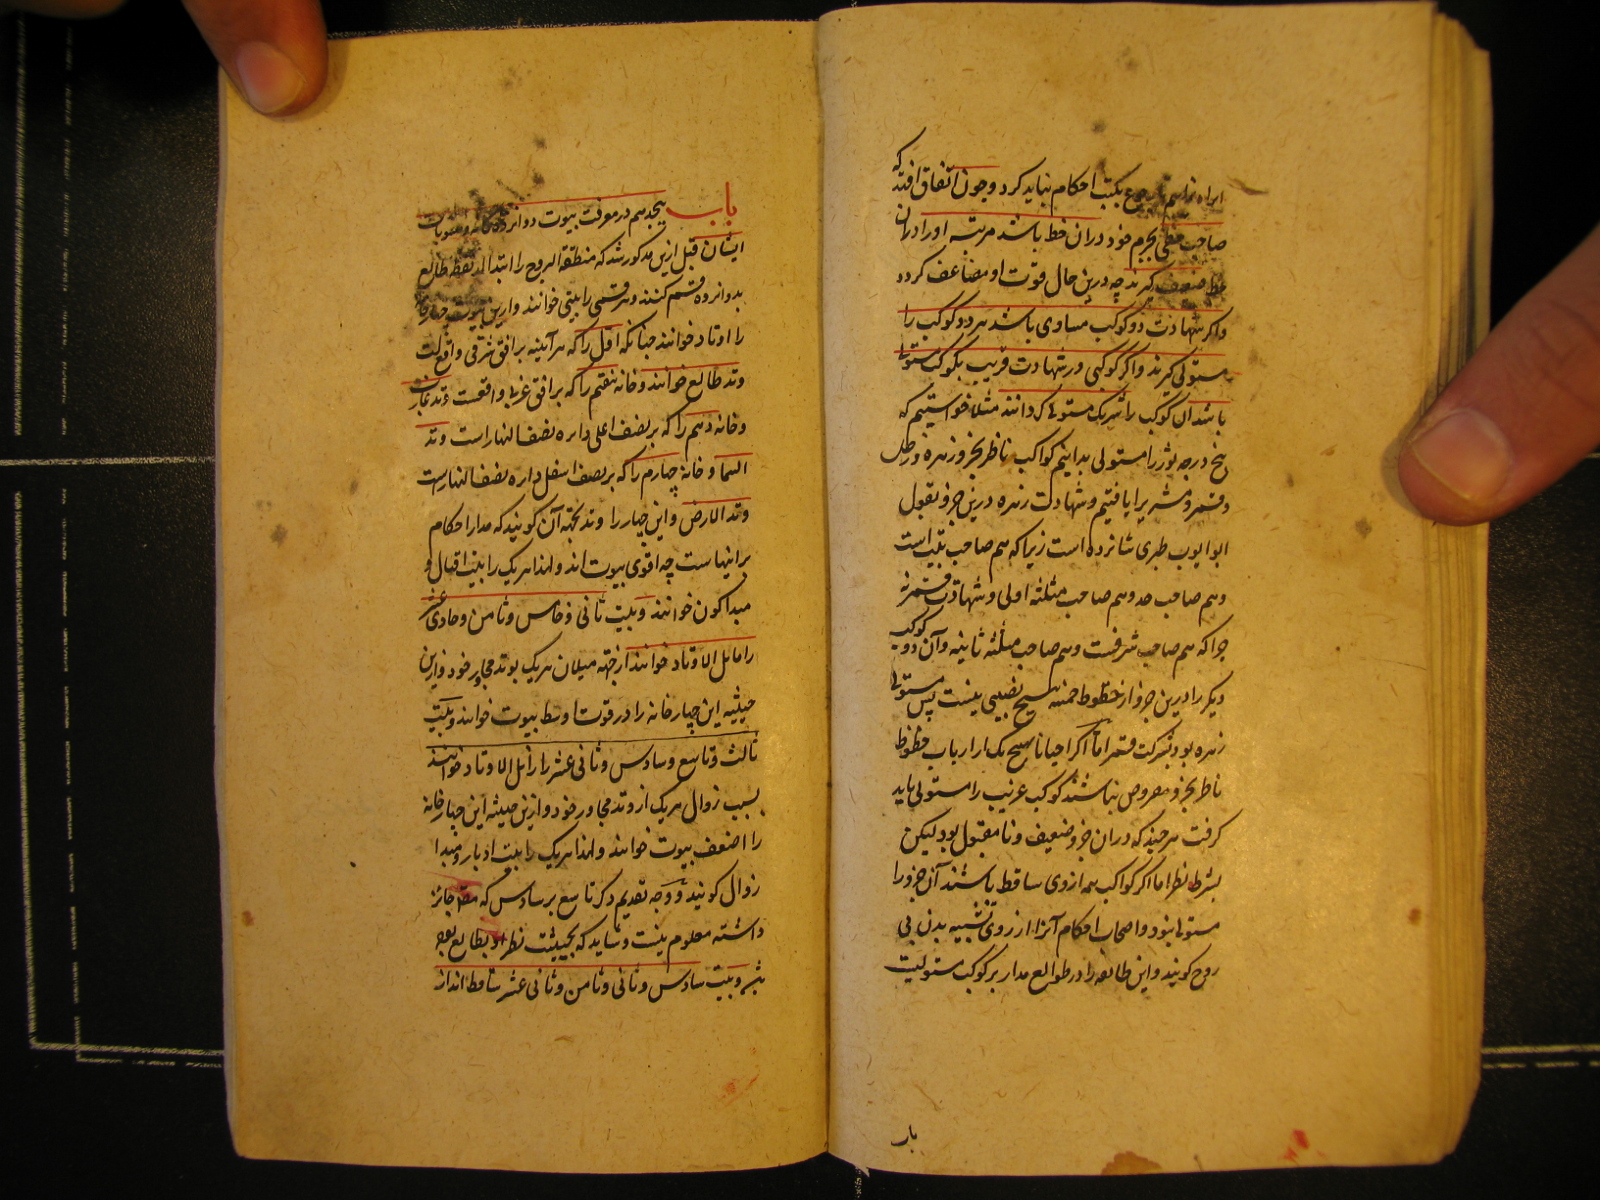 بکتب احکام نباید کرد و چون اتفاق افتد که
صاحب خطی بجرم خود دران خط باشد مرتبه او را دران
خط ضعف گیرند چه درین حال قوت او مضاعف گردد
و اگر شهادت دو کوکب مساوی باشد هر دو کوکب را
مستولی گیرند و اگر کوکبی در شهادت قریب بکوکب مستولی
باشد آن کوکب را شریک مستولی گردانند مثلا خواستیم که
پنج درجه ثور را مستولی بدانیم کواکب ناظر بجزو زهره و زحل
و قمر و مشتری را یافتیم و شهادت زهره درین جزو بقول
ابو ایوب طبری شانزده است زیرا که هم صاحب بیت است
و هم صاحب حد و هم صاحب مثلثه اولی و شهادت قمر نه
چرا که هم صاحب شرفست و هم صاحب مثلثه ثانیه و آن دو کوکب
دیگر را درین جزو از حظوظ خمسه هیچ نصیبی نیست پس مستولی
زهره بود بشرکت قمر اما اگر احیانا هیچ یک از ارباب حظوظ
ناظر بجزو مفروض نباشند کوکب غریب را مستولی باید
گرفت هر چند که دران جزو ضعیف و نا مقبول بود لیکن
بشرط نظر اما اگر کواکب همه از وی ساقط باشند آن جزو را
مستولی نبود و اصحاب احکام آنرا از روی تشبیه بدن بی
روح گویند و این طائفه را در طوالع مدار بر کوکب مستولیست
باب
باب هیجدهم در معرفت بیوت دوازدهگانه و منسوبات
ایشان قبل ازین مذکور شد که منطقة البروج را ابتدا از نقطه طالع
بدوازده قسم کنند و هر قسمی را بیتی خوانند و ازین بیوت چهار خانه
را اوتاد خوانند چنانکه اول را که هر آئینه بر افق شرقی واقع است
وتد طالع خوانند و خانه هفتم را که بر افق غربی واقعست وتد غارب
و خانه دهم را که بر نصف اعلی دایره نصف النهار است وتد
السما و خانه چهارم را که بر نصف اسفل دایره نصف النهار است
وتد الارض و این چهار را وتد بجهة آن گویند که مدار احکام
بر اینهاست چه اقوی بیوت اند و لهذا هر یک را بیت اقبال و
مبدا کون خوانند و بیت ثانی و خامس و ثامن و حادی عشر
را مایل الاوتاد خوانند از جهة میلان هر یک بوتد مجاور خود و ازین
حیثیه این چهار خانه را در قوت اوسط بیوت خوانند و بیت
ثالث و تاسع و سادس و ثانی عشر را زایل الاوتاد خوانند
بسبب زوال هر یک از وتد مجاور خود و ازین حیثیه این چهار خانه
را اضعف بیوت خوانند و لهذا هر یک را بیت ادبار و مبدا
زوال گویند و وجه تقدیم ذکر تاسع بر سادس که جائز
داشته معلوم نیست و شاید که بحیثیت نظر او بطالع بوده
و بیت سادس و ثانی و ثامن و ثانی عشر ساقط اند از